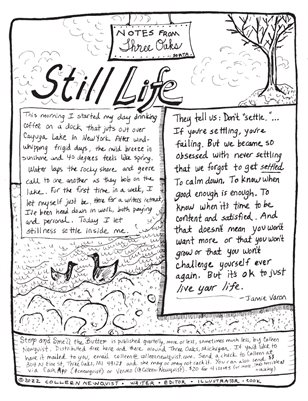 NOTES FROM
Three Oaks
Still Life
This morning I started my day drinking
coffee on a dock that juts out over
Cayuga Lake in New York. After wind-
whipping frigid days, the mild breeze is
sunshine and 40 degrees feels like spring.
Water laps the rocky shore, and geese
call to one another as they bob on the
lake. For the first time in a week, I
let myself just be. Here for a writers retreat,
I've been head down in work, both paying
and personal. Today I let
stillness settle inside me.
They tell us: Don't "settle."...
If you're settling, you're
failing. But we became so
obsessed with never settling
that we forgot to get settled.
To calm down. To know when
good enough is enough. To
know when it's time to be
content and satisfied. And
that doesn't mean you won't
want more or that you won't
grow or that you won't
challenge yourself ever
again. But it's ok to just
live your life.
- Jamie Varon
Stoop and Smell the Butter is published quarterly, more or less, sometimes much less, by Colleen
Newquist. Distributed free here and there around Three Oaks, Michigan. If you'd like to
have it mailed to you, email colleen@colleennewquist.com. Send a check to Colleen at
St, Three Oaks, MI 49128 and she may or may not cash it. You can also send $$
via Cash App ($cnewquist) or Venmo (@Colleen-Newquist). $20 for 4 issues (or more
©2022 COLLEEN NEWQUIST • WRITER • EDITOR • ILLUSTRATOR • COOK